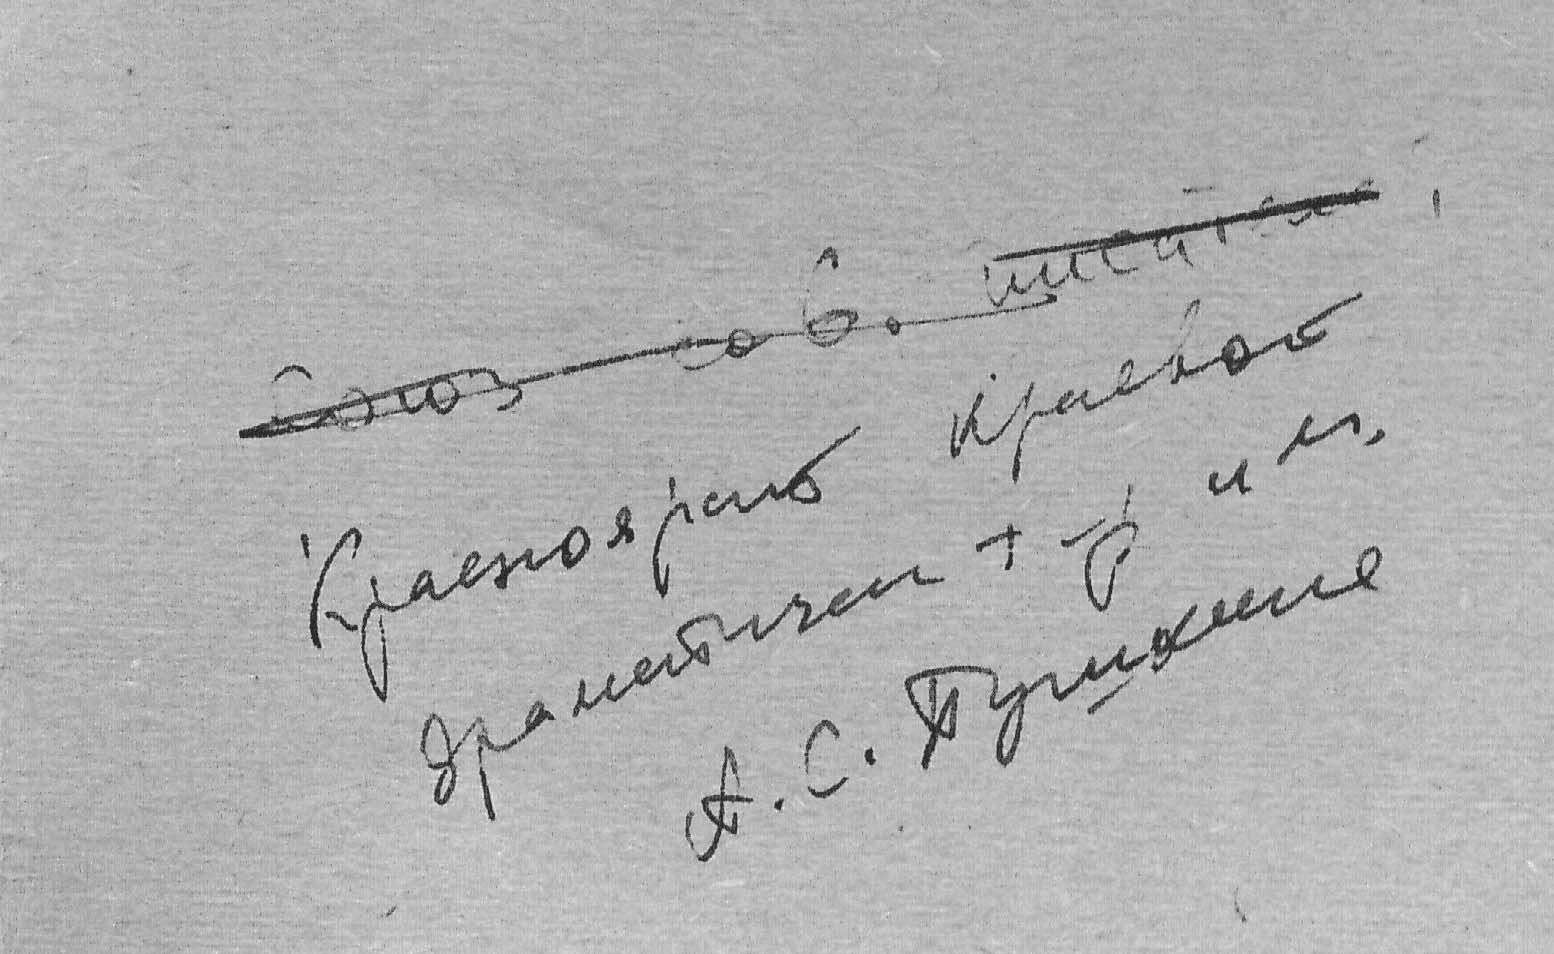 Союз сов. писател
Красноярск краевой
драматическ т-р им.
А. С. Пушкина